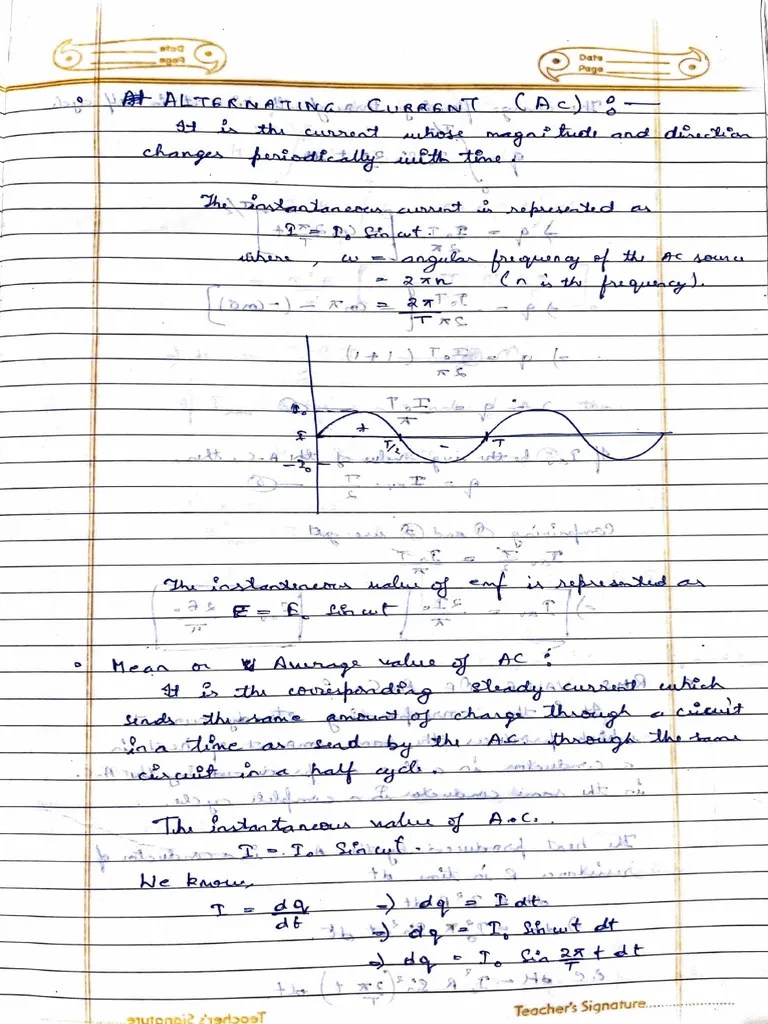 Date
Page
• ALTERNATING CURRENT (AC) :—
It is the current whose magnitude and direction
changes periodically with time.
The instantaneous current is represented as
I = I₀ Sin ωt.
where, ω = angular frequency of the AC source
= 2πn (n is the frequency).
= 2π/T
I₀
I
-I₀
+
T/2
-
T
The instanteneous value of emf is represented as
E = E₀ Sin ωt
• Mean or Average value of AC :
It is the corresponding steady current which
sends the same amount of charge through a circuit
in a time as send by the A.C. through the same
circuit in a half cycle.
The instantaneous value of A.C.
I = I₀ Sin ωt.
We know,
I = dq/dt ⇒ dq = I dt
⇒ dq = I₀ Sin ωt dt
⇒ dq = I₀ Sin 2π/T t dt
Teacher's Signature